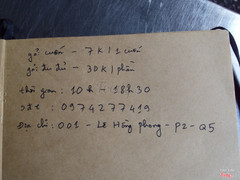 gỏi cuốn - 7K/1 cuốn
gỏi đu đủ - 30K/phần
thời gian: 10h - 18h30
sđt: 0974277419
Địa chỉ: 001 - Lê Hồng Phong - P2 - Q5